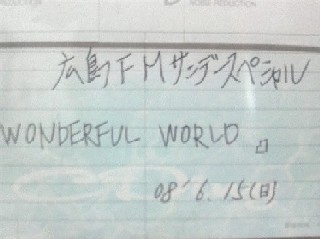 広島FMサンデースペシャル
WONDERFUL WORLD 』
08' 6. 15(日)